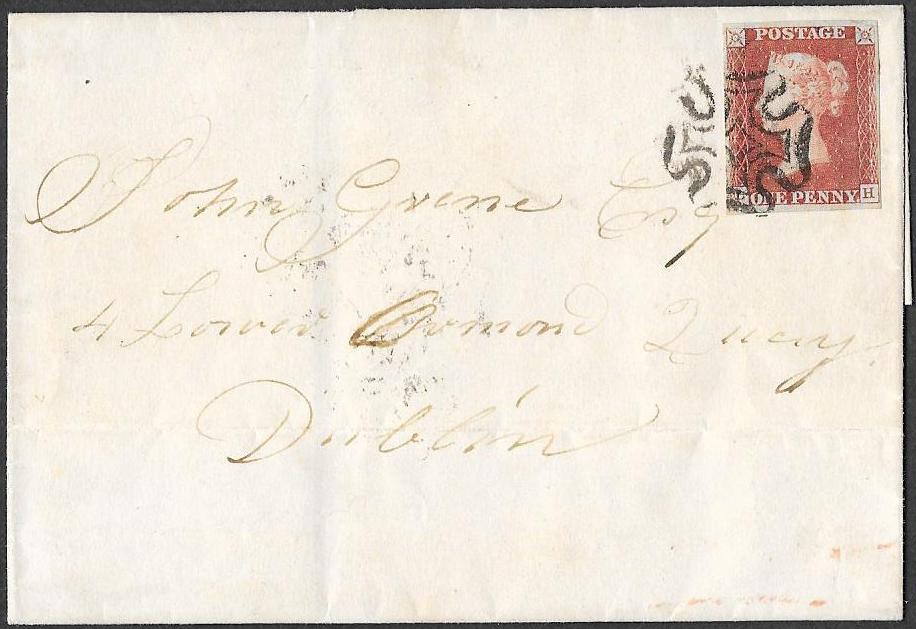 POSTAGE
ONE PENNY H
John Grene Esq
4 Lower Ormond Quay
Dublin